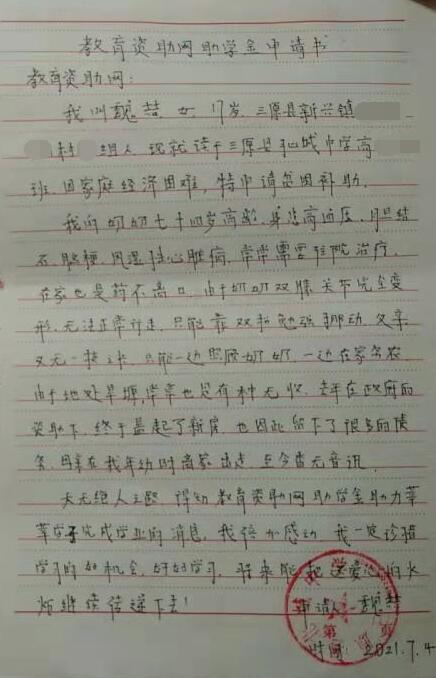 教育资助网助学金申请书
教育资助网:
我叫魏喆 女 17岁 三原县新兴镇
村 组人 现就读于三原县 城中学高
班.因家庭经济困难,特申请贫困补助.
我的奶奶七十四岁高龄.身患高血压、胆结
石、脑梗、风湿性心脏病,常常需要住院治疗.
在家也是药不离口.由于奶奶双膝关节完全变
形,无法正常行走.只能靠双拐勉强挪动.父亲
又无一技之长.只能一边照顾奶奶,一边在家务农.
由于地处旱塬,常常也是有种无收.去年在政府的
资助下,终于盖起了新房.也因此留下了很多的债
务.母亲在我年幼时离家出走,至今杳无音讯.
天无绝人之路.得知教育资助网助学金助力莘
莘学子完成学业的消息.我倍加感动.我一定珍惜
学习的好机会.好好学习.将来能把这爱心的火
炬继续传递下去!
申请人:魏喆
时间:2021.7.4